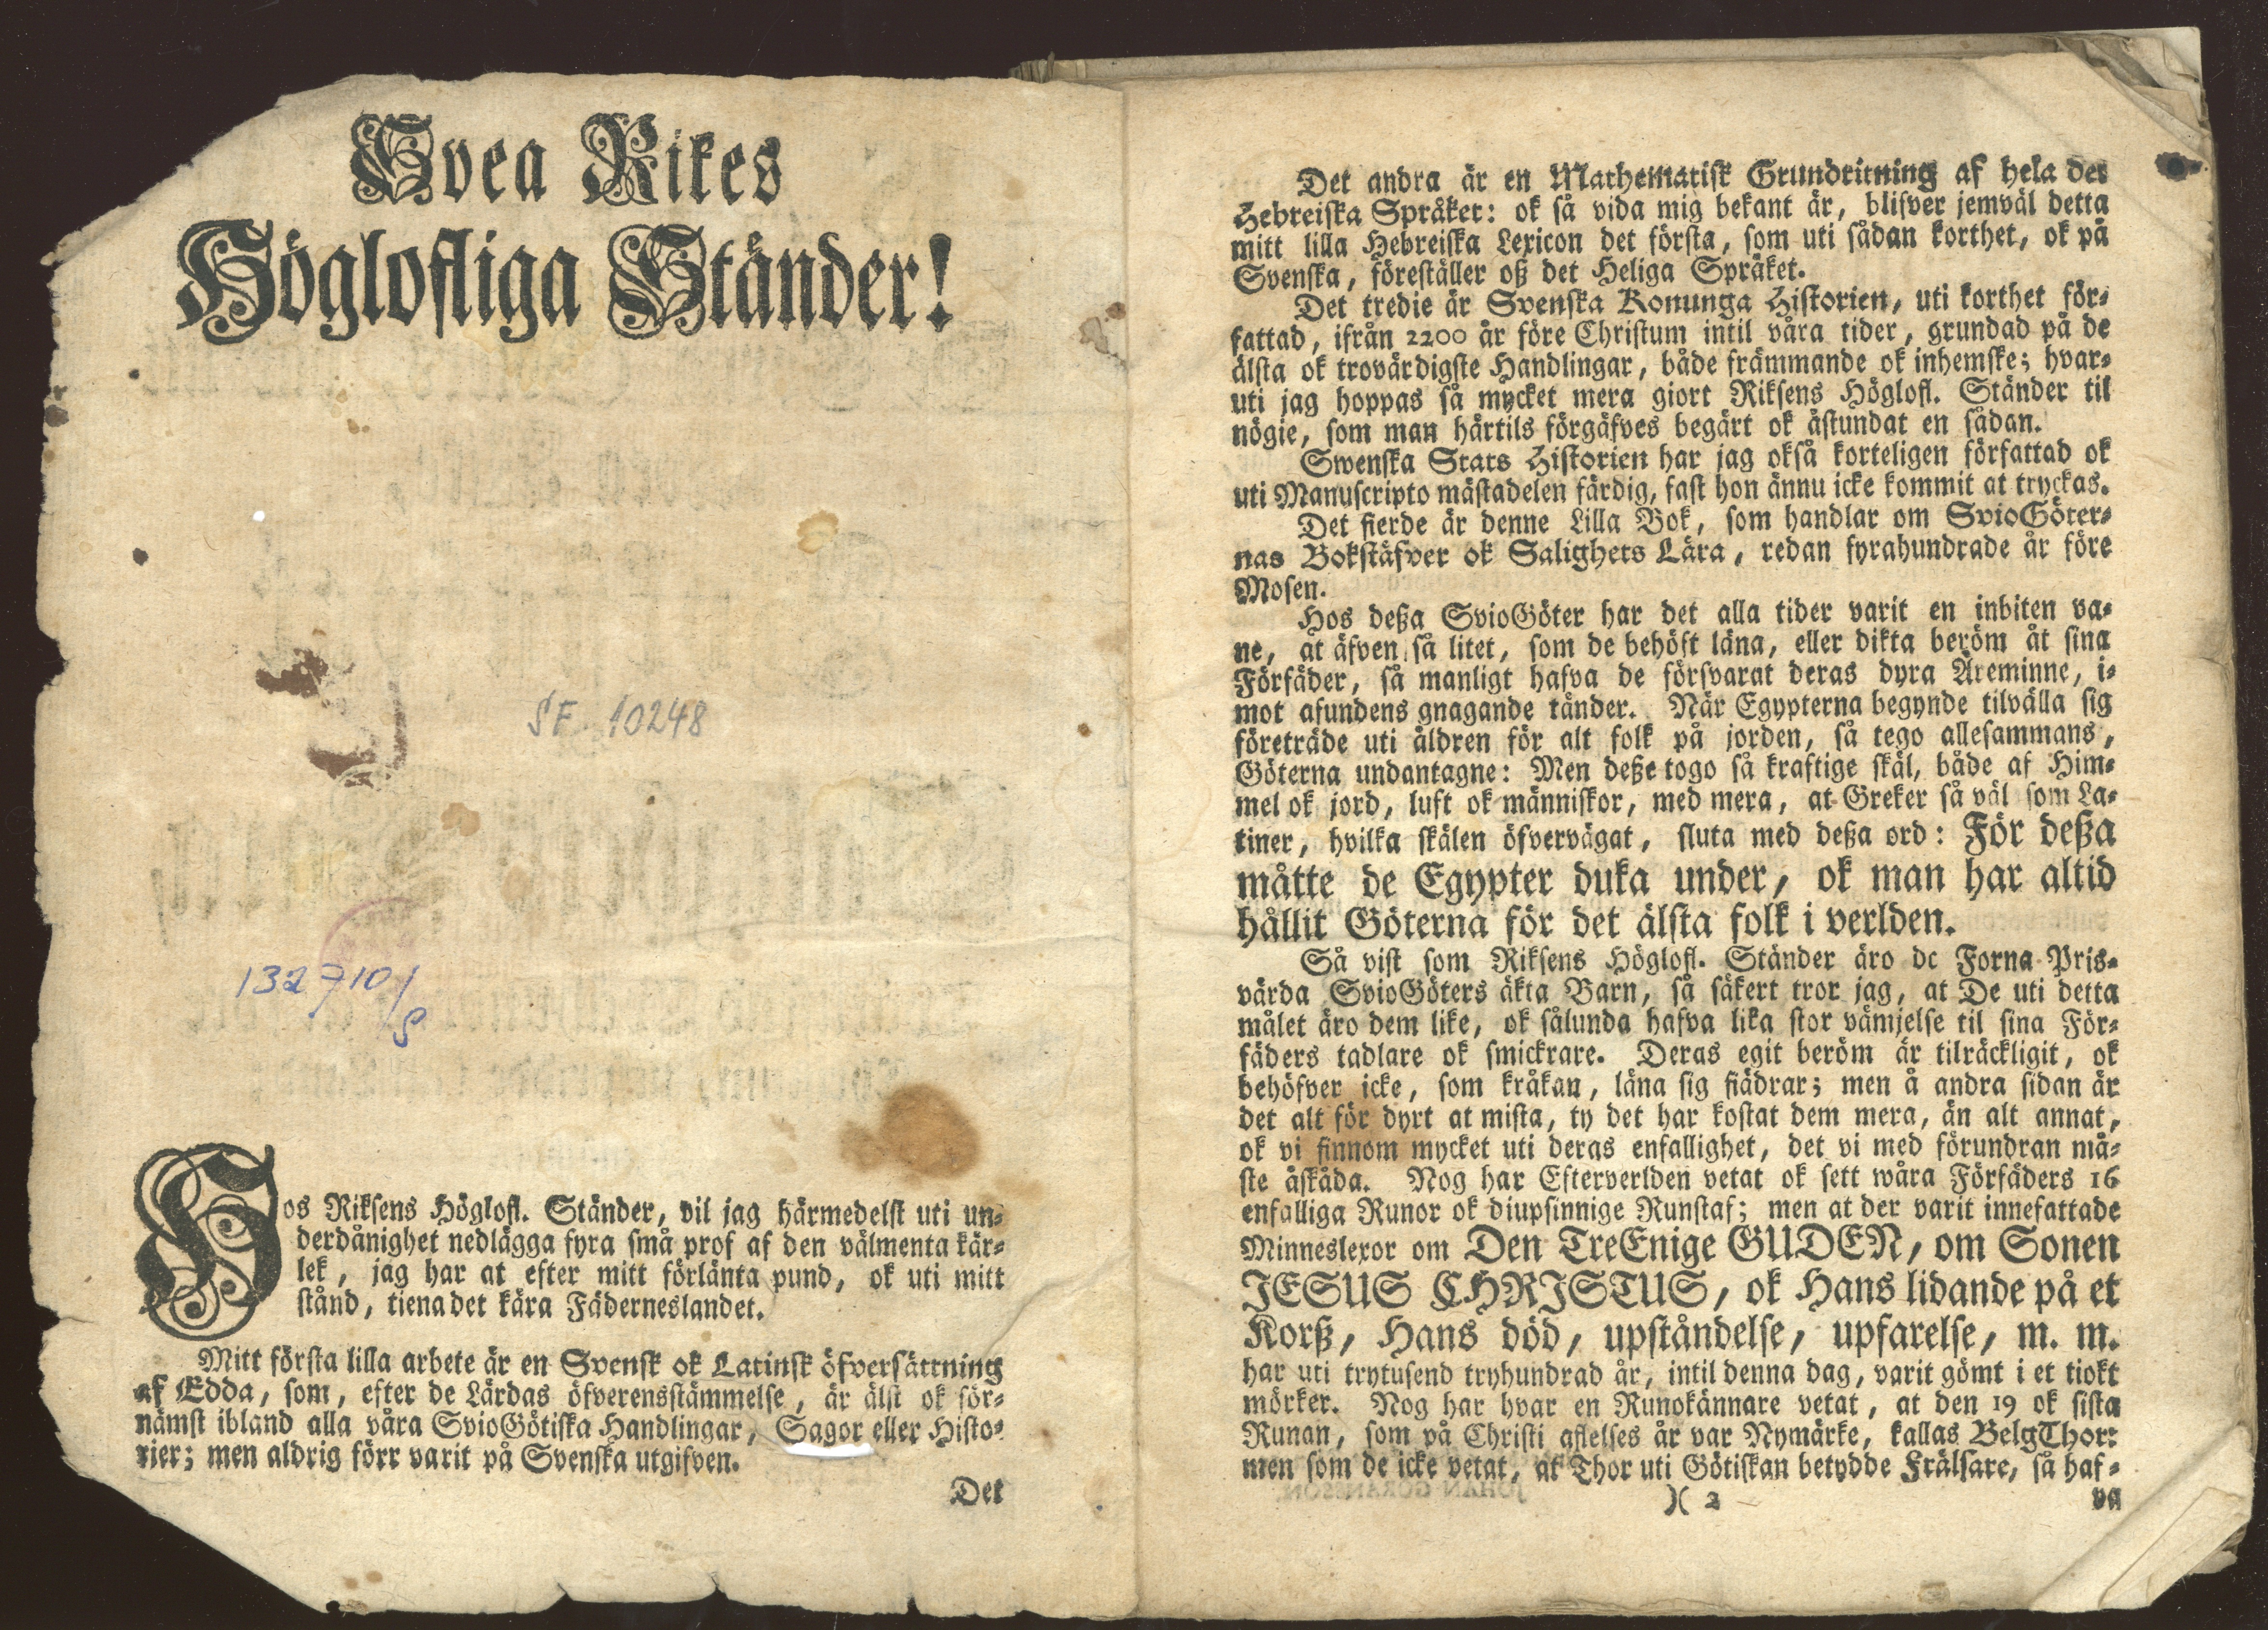 Svea Rikes
Höglofliga Ständer!
SF. 10248
132710/
S
Hos Riksens Höglofl. Ständer, vil jag härmedelst uti un-
derdånighet nedlägga fyra små prof af den välmenta kär-
lek, jag har at efter mitt förlänta pund, ok uti mitt
stånd, tiena det kära Fäderneslandet.
Mitt första lilla arbete är en Svensk ok Latinsk öfversättning
af Edda, som, efter de Lärdas öfverensstämmelse, är älst ok för-
nämst ibland alla våra SvioGötiska Handlingar, Sagor eller Histo-
rier; men aldrig förr varit på Svenska utgifven.
Det
Det andra är en Mathematisk Grundritning af hela det
Hebreiska Språket: ok så vida mig bekant är, blifver jemväl detta
mitt lilla Hebreiska Lexicon det första, som uti sådan korthet, ok på
Svenska, föreställer oß det Heliga Språket.
Det tredie är Svenska Konunga Historien, uti korthet för-
fattad, ifrån 2200 år före Christum intil våra tider, grundad på de
älsta ok trovärdigste Handlingar, både främmande ok inhemske; hvar-
uti jag hoppas så mycket mera giort Riksens Höglofl. Ständer til
nögie, som man härtils förgäfves begärt ok åstundat en sådan.
Swenska Stats Historien har jag okså korteligen författad ok
uti Manuscripto mästadelen färdig, fast hon ännu icke kommit at tryckas.
Det fierde är denne Lilla Bok, som handlar om SvioGöter-
nas Bokstäfver ok Salighets Lära, redan fyrahundrade år före
Mosen.
Hos deßa SvioGöter har det alla tider varit en inbiten va-
ne, at äfven så litet, som de behöft läna, eller dikta beröm åt sina
Förfäder, så manligt hafva de försvarat deras dyra Äreminne, i-
mot afundens gnagande tänder. När Egypterna begynde tilvälla sig
företräde uti åldren för alt folk på jorden, så tego allesammans,
Göterna undantagne: Men deße togo så kraftige skäl, både af Him-
mel ok jord, luft ok människor, med mera, at Greker så väl som La-
tiner, hvilka skälen öfvervägat, sluta med deßa ord: För deßa
måtte de Egypter duka under, ok man har altid
hållit Göterna för det älsta folk i verlden.
Så vist som Riksens Höglofl. Ständer äro de Forna Pris-
värda SvioGöters äkta Barn, så säkert tror jag, at De uti detta
målet äro dem like, ok sålunda hafva lika stor vämjelse til sina För-
fäders tadlare ok smickrare. Deras egit beröm är tilräckligit, ok
behöfver icke, som kråkan, läna sig fiädrar; men å andra sidan är
det alt för dyrt at mista, ty det har kostat dem mera, än alt annat,
ok vi finnom mycket uti deras enfallighet, det vi med förundran må-
ste åskåda. Nog har Efterverlden vetat ok sett wåra Förfäders 16
enfalliga Runor ok diupsinnige Runstaf; men at der varit innefattade
Minneslexor om Den TreEnige GUDEN, om Sonen
JESUS CHRISTUS, ok Hans lidande på et
Korß, Hans död, upståndelse, upfarelse, m. m.
har uti trytusend tryhundrad år, intil denna dag, varit gömt i et tiokt
mörker. Nog har hvar en Runokännare vetat, at den 19 ok sista
Runan, som på Christi aflelses år var Nymärke, kallas BelgThor:
men som de icke vetat, at Thor uti Götiskan betydde Frälsare, så haf-
)( 2
va